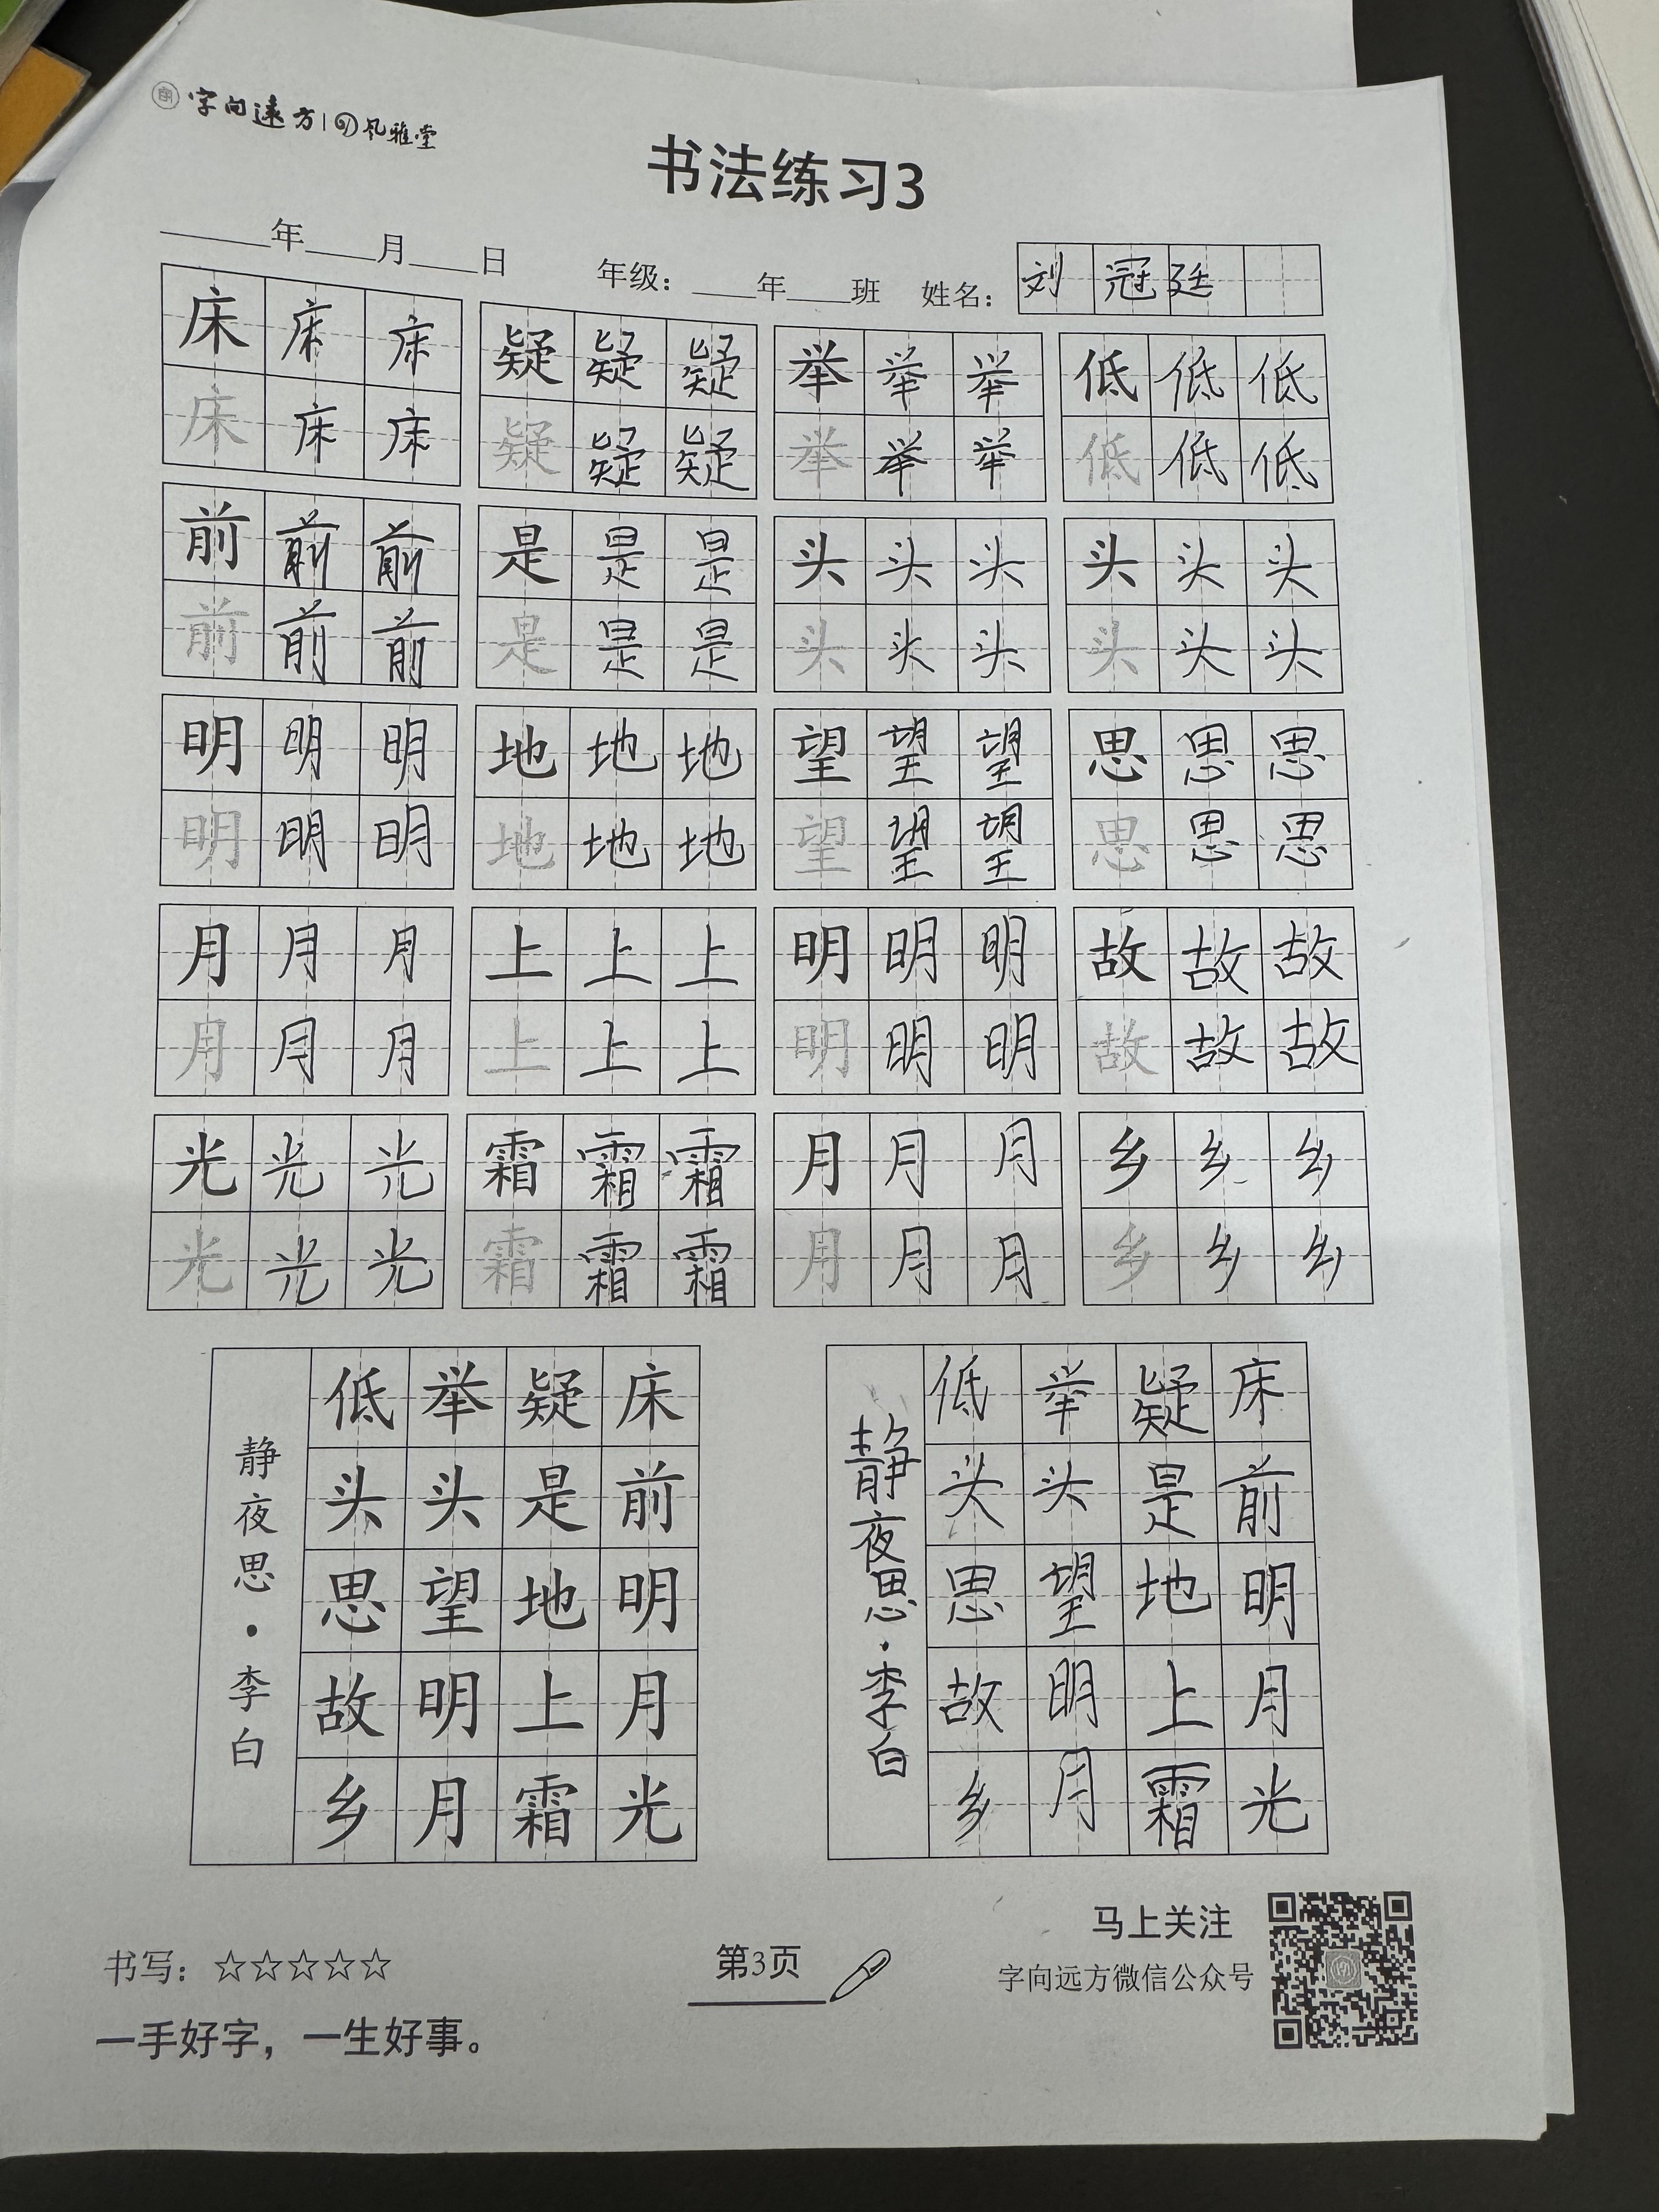 字向远方 风雅堂
书法练习3
年 月 日 年级: 年 班 姓名: 刘冠廷
床床床 疑疑疑 举举举 低低低
床床床 疑疑疑 举举举 低低低
前前前 是是是 头头头 头头头
前前前 是是是 头头头 头头头
明明明 地地地 望望望 思思思
明明明 地地地 望望望 思思思
月月月 上上上 明明明 故故故
月月月 上上上 明明明 故故故
光光光 霜霜霜 月月月 乡乡乡
光光光 霜霜霜 月月月 乡乡乡
床前明月光
疑是地上霜
举头望明月
低头思故乡
静夜思·李白
床前明月光
疑是地上霜
举头望明月
低头思故乡
静夜思·李白
书写: ☆☆☆☆☆
一手好字，一生好事。
第3页
马上关注
字向远方微信公众号